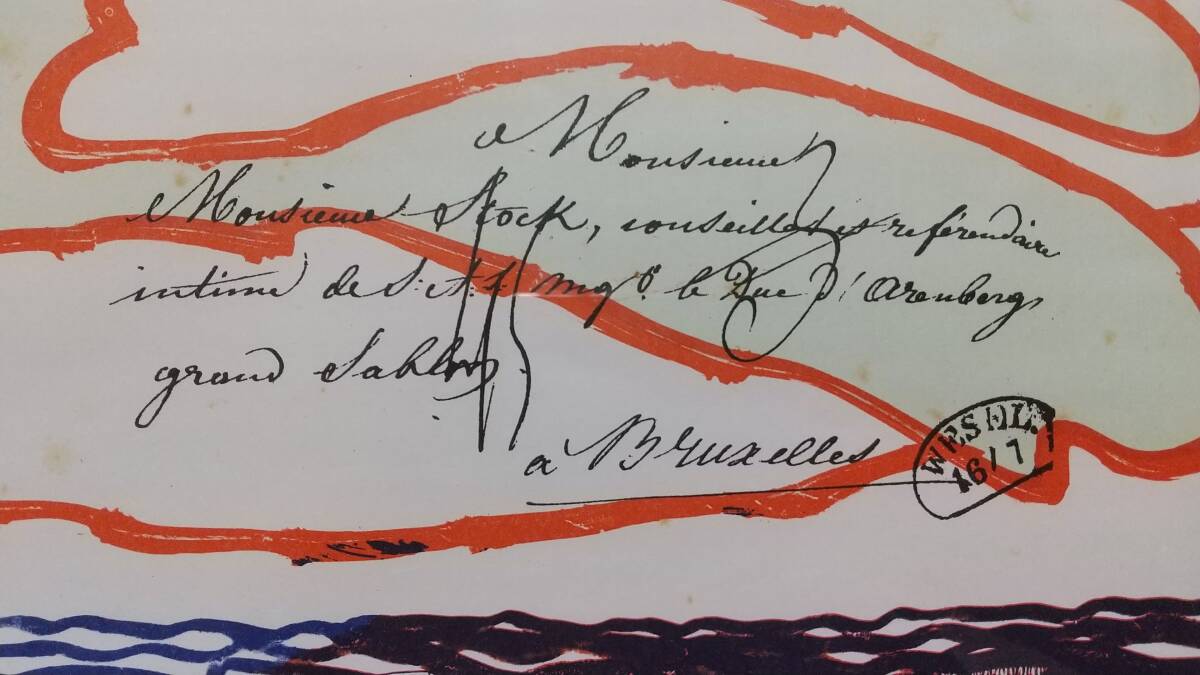 Monsieur
Monsieur Stock, conseiller et référendaire
intime de S: A: S: Mgr. le Duc d'Arenberg,
grand Sablon
à Bruxelles
WESEL
16/7